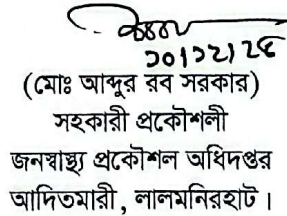 (মোঃ আব্দুর রব সরকার)
সহকারী প্রকৌশলী
জনস্বাস্থ্য প্রকৌশল অধিদপ্তর
আদিতমারী, লালমনিরহাট।